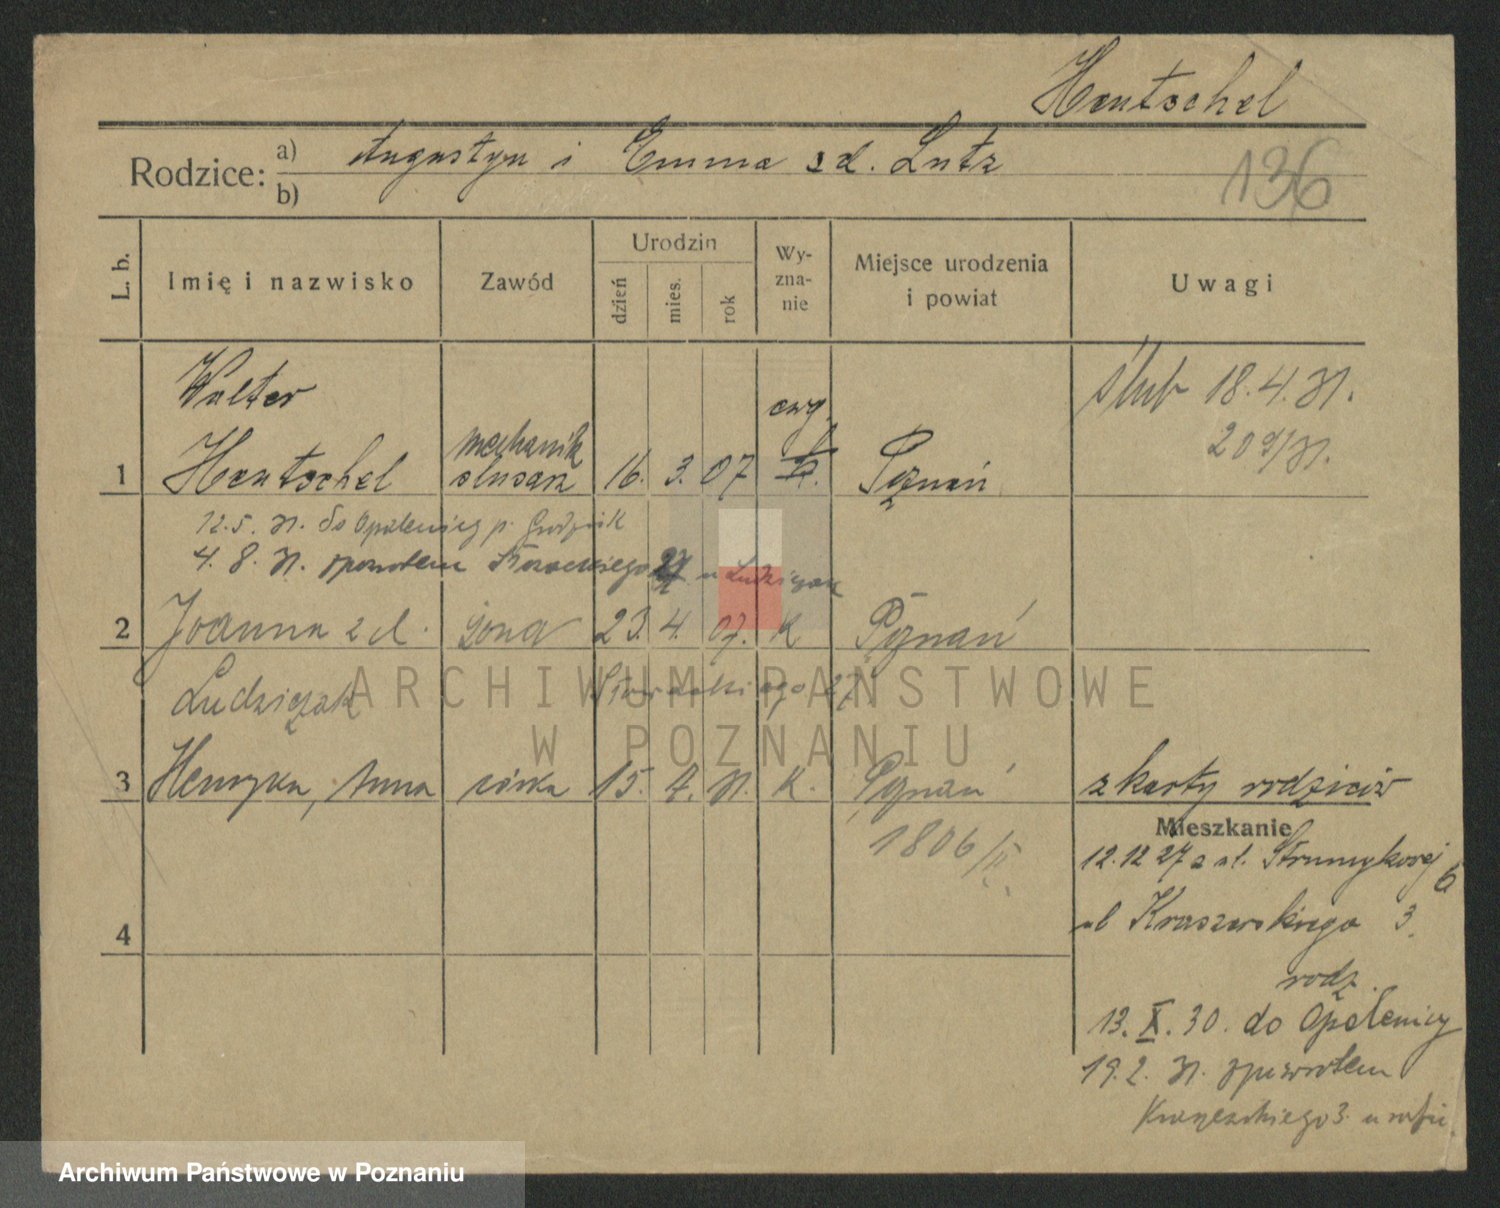 Hentschel
Rodzice: a) Augustyn i Emma zd. Lutz
b)
136
L. b. Imię i nazwisko Zawód Urodzin dzień mies. rok Wy-zna-nie Miejsce urodzenia i powiat Uwagi
Walter ewg. ślub 18.4.31.
mechanik 209/31.
1 Hentschel ślusarz 16. 3. 07 Poznań
12.5.31. do Opalenicy p. Grodzisk
4.8.31. zpowrotem 27 u Ludziczak
2 Joanna zd. żona 23. 4. 07. K Poznań
Ludziczak 27.
3 Henryka, Anna córka 15. 4. 31. K. Poznań z karty rodziców
1806/II.
Mieszkanie
12.12 27 z ul. Strumykowej 6
4 ul Kraszewskiego 3.
rodz.
13. X. 30. do Opalenicy
19.2.31. zpowrotem
Kraszewskiego 3.
ARCHIWUM PAŃSTWOWE
W POZNANIU
Archiwum Państwowe w Poznaniu